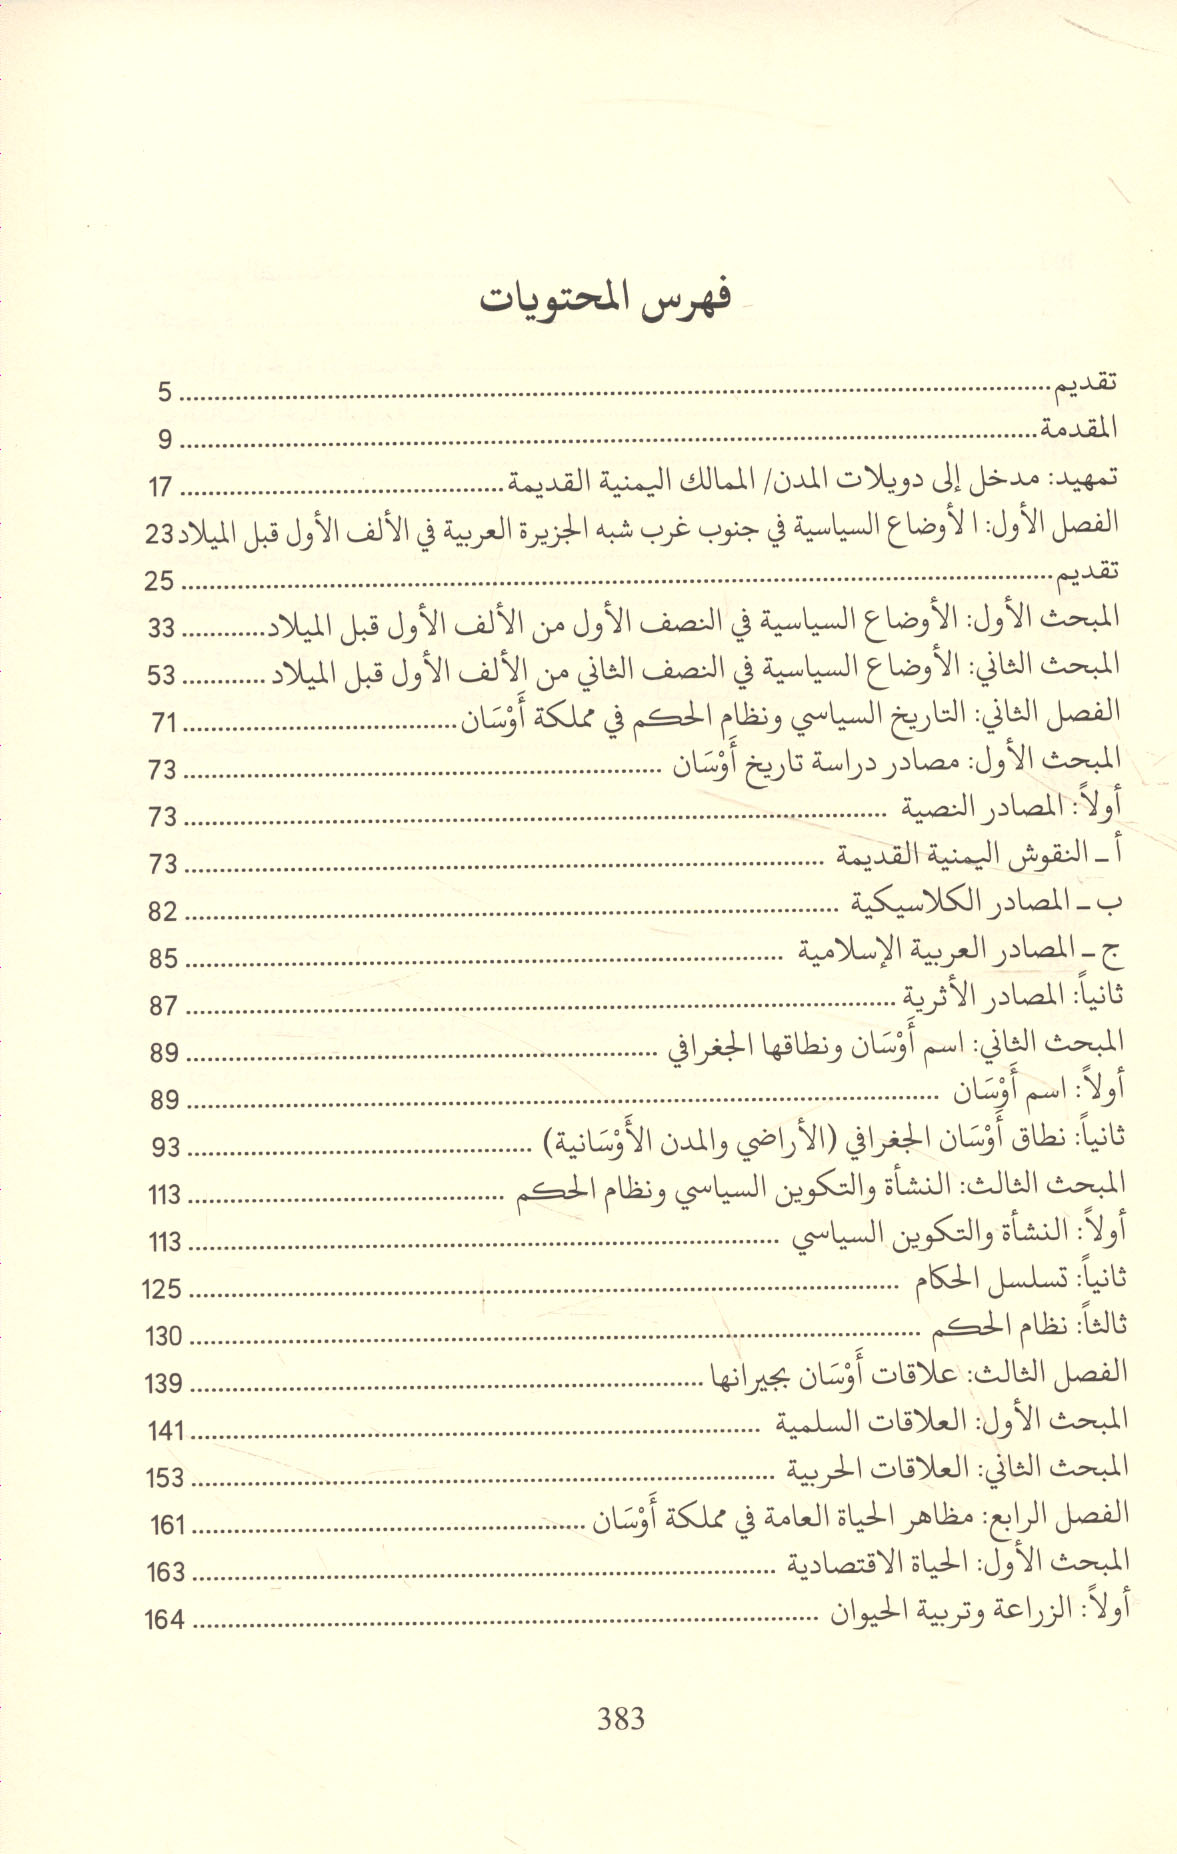 فهرس المحتويات
تقديم ........ 5
المقدمة ........ 9
تمهيد: مدخل إلى دويلات المدن/ الممالك اليمنية القديمة ........ 17
الفصل الأول: الأوضاع السياسية في جنوب غرب شبه الجزيرة العربية في الألف الأول قبل الميلاد 23
تقديم ........ 25
المبحث الأول: الأوضاع السياسية في النصف الأول من الألف الأول قبل الميلاد ........ 33
المبحث الثاني: الأوضاع السياسية في النصف الثاني من الألف الأول قبل الميلاد ........ 53
الفصل الثاني: التاريخ السياسي ونظام الحكم في مملكة أَوْسَان ........ 71
المبحث الأول: مصادر دراسة تاريخ أَوْسَان ........ 73
أولاً: المصادر النصية ........ 73
أ ـ النقوش اليمنية القديمة ........ 73
ب ـ المصادر الكلاسيكية ........ 82
ج ـ المصادر العربية الإسلامية ........ 85
ثانياً: المصادر الأثرية ........ 87
المبحث الثاني: اسم أَوْسَان ونطاقها الجغرافي ........ 89
أولاً: اسم أَوْسَان ........ 89
ثانياً: نطاق أَوْسَان الجغرافي (الأراضي والمدن الأَوْسَانية) ........ 93
المبحث الثالث: النشأة والتكوين السياسي ونظام الحكم ........ 113
أولاً: النشأة والتكوين السياسي ........ 113
ثانياً: تسلسل الحكام ........ 125
ثالثاً: نظام الحكم ........ 130
الفصل الثالث: علاقات أَوْسَان بجيرانها ........ 139
المبحث الأول: العلاقات السلمية ........ 141
المبحث الثاني: العلاقات الحربية ........ 153
الفصل الرابع: مظاهر الحياة العامة في مملكة أَوْسَان ........ 161
المبحث الأول: الحياة الاقتصادية ........ 163
أولاً: الزراعة وتربية الحيوان ........ 164
383